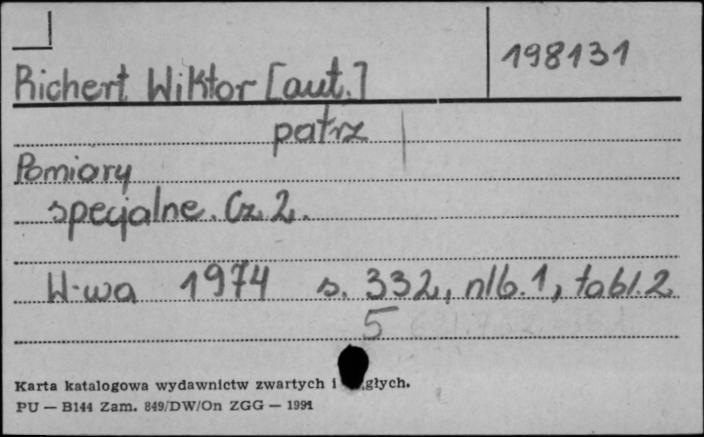 198131
Richert Wiktor [aut.]
patrz
Pomiary
specjalne. Cz. 2.
W-wa 1974 s. 332, nlb. 1, tabl. 2
5
Karta katalogowa wydawnictw zwartych i głych.
PU — B144 Zam. 849/DW/On ZGG — 1991